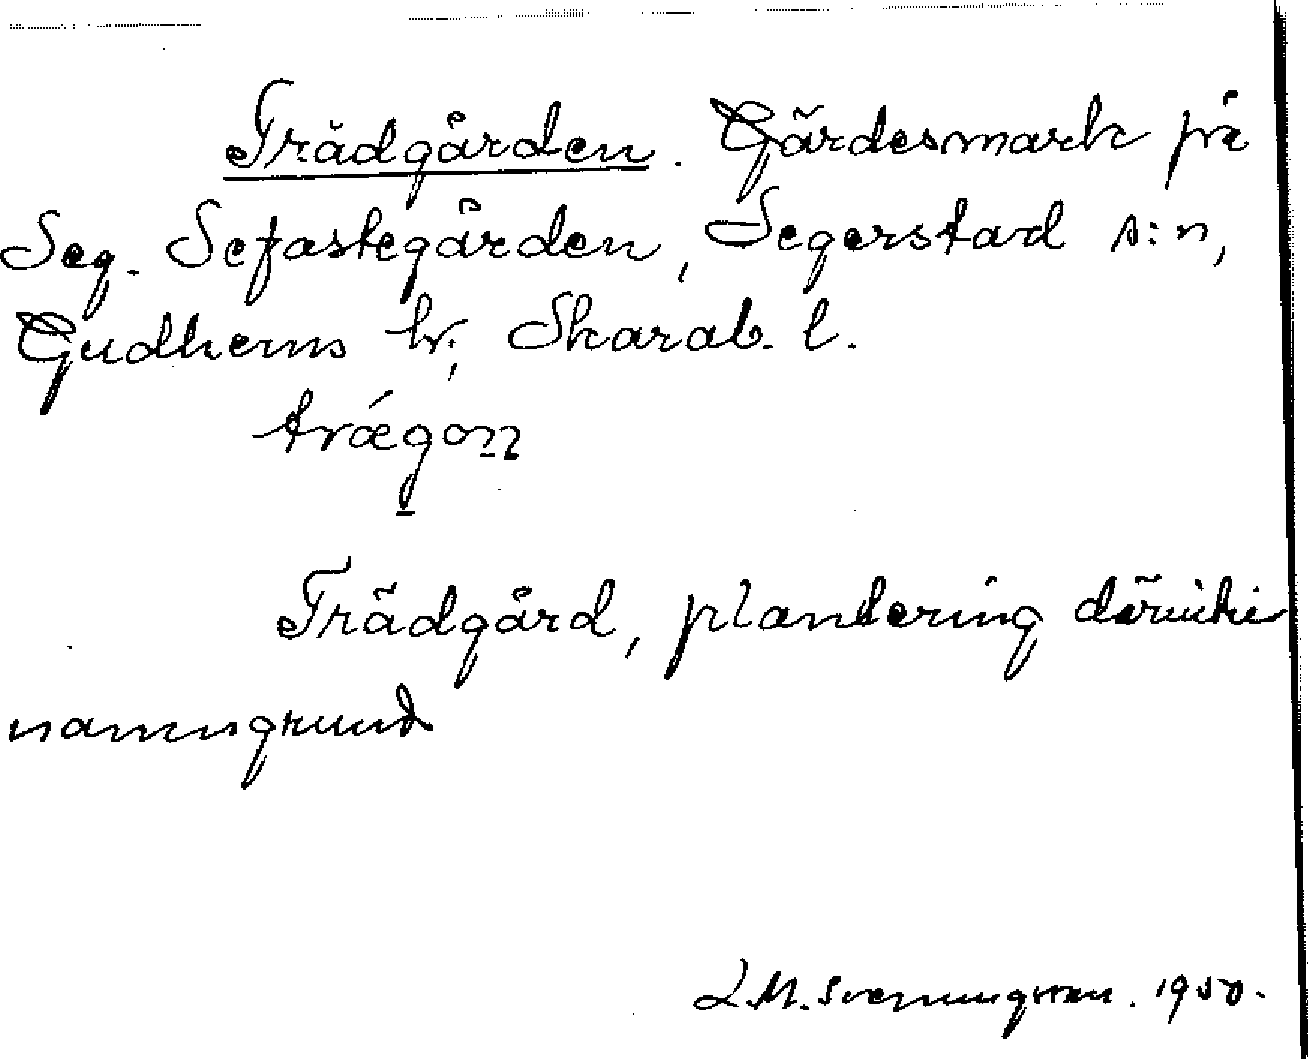 Trädgården. Gärdesmark på
Seg. Sefastegården, Segerstad s:n,
Gudhems hr, Skarab. l.
trǽgo𝑛𝑛
Trädgård, plantering därinti
namngrund
L.M. Svenungsson. 1950.